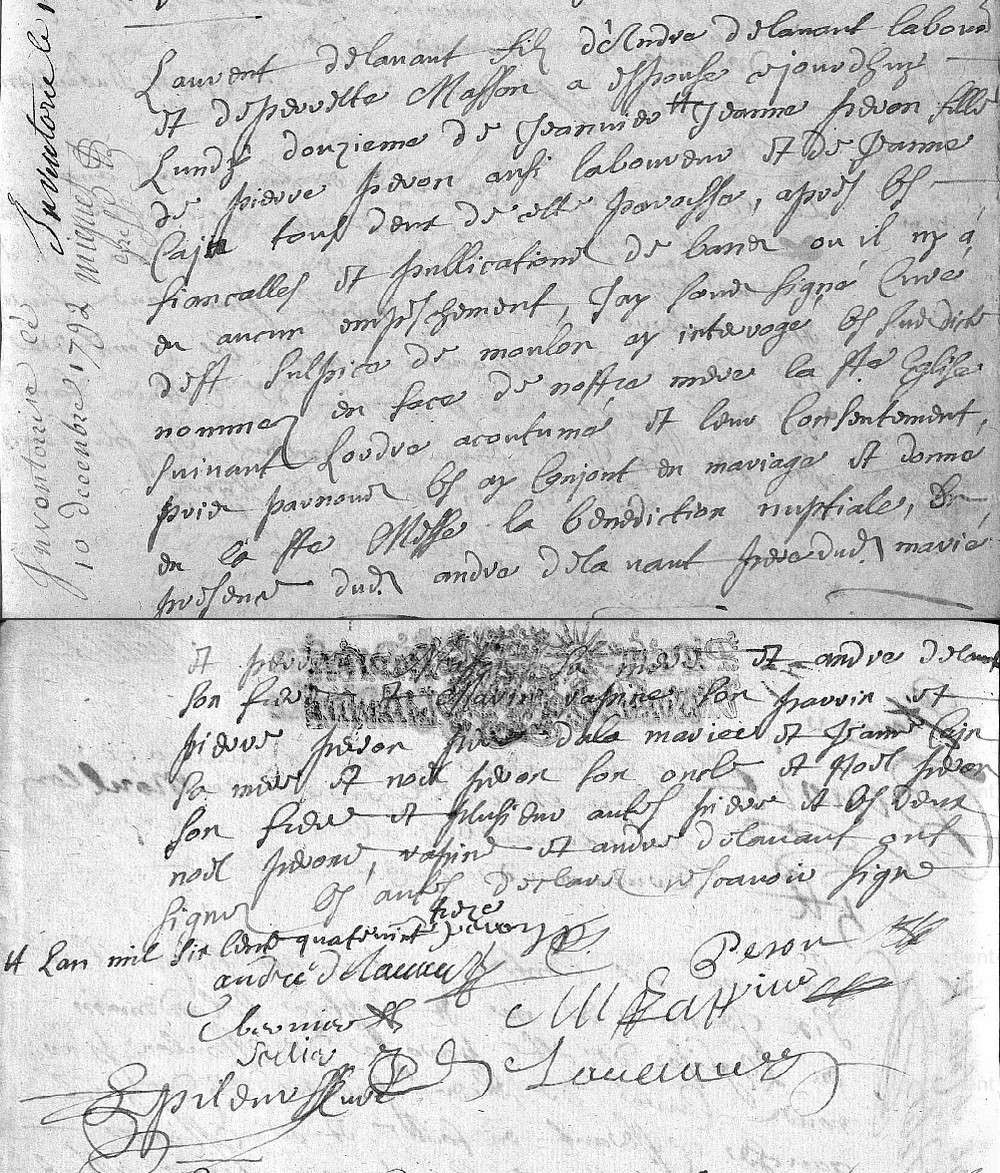 Inventorie le
Inventorise ce
10 decembre 1792 Miquel
Laurent delavant fils d'Andre delavant labour
et de perrette Masson a espouse cejourdhuy
Lundy douzieme de Jeanvier # Jeanne peron fille
de pierre peron aussi laboureur et de Jeanne
Cajn tous deux de cette paroisse, apres les
fiancalles et pullications de bans ou il ny a
eu aucun empeschement, Jay soussigné Curé
de St Sulpice de moulon ay interrogé les susdicts
nommes en face de nostre mere la Ste Eglise
suivant Lordre acoutumé et leur Consentement,
pris par nous les ay Conjont en mariage et donne
en la Ste Messe la benediction nuptiale, En
presence dud. andre delavant pere dud. marié
et sa mere et andre delavant
son frere et rapine son parrin et
pierre peron pere dela mariee et Jeanne Cajn
sa mere et noel peron son oncle et Noel peron
son frere et plusieur autres et les deux
noel perons, rapine et andre delavant ont
signes les autres declares nescavoir signe
# Lan mil six Cent quatrevint treze
andre delavant
Peron
M Rappine
Bernier
Lauvant
Curé